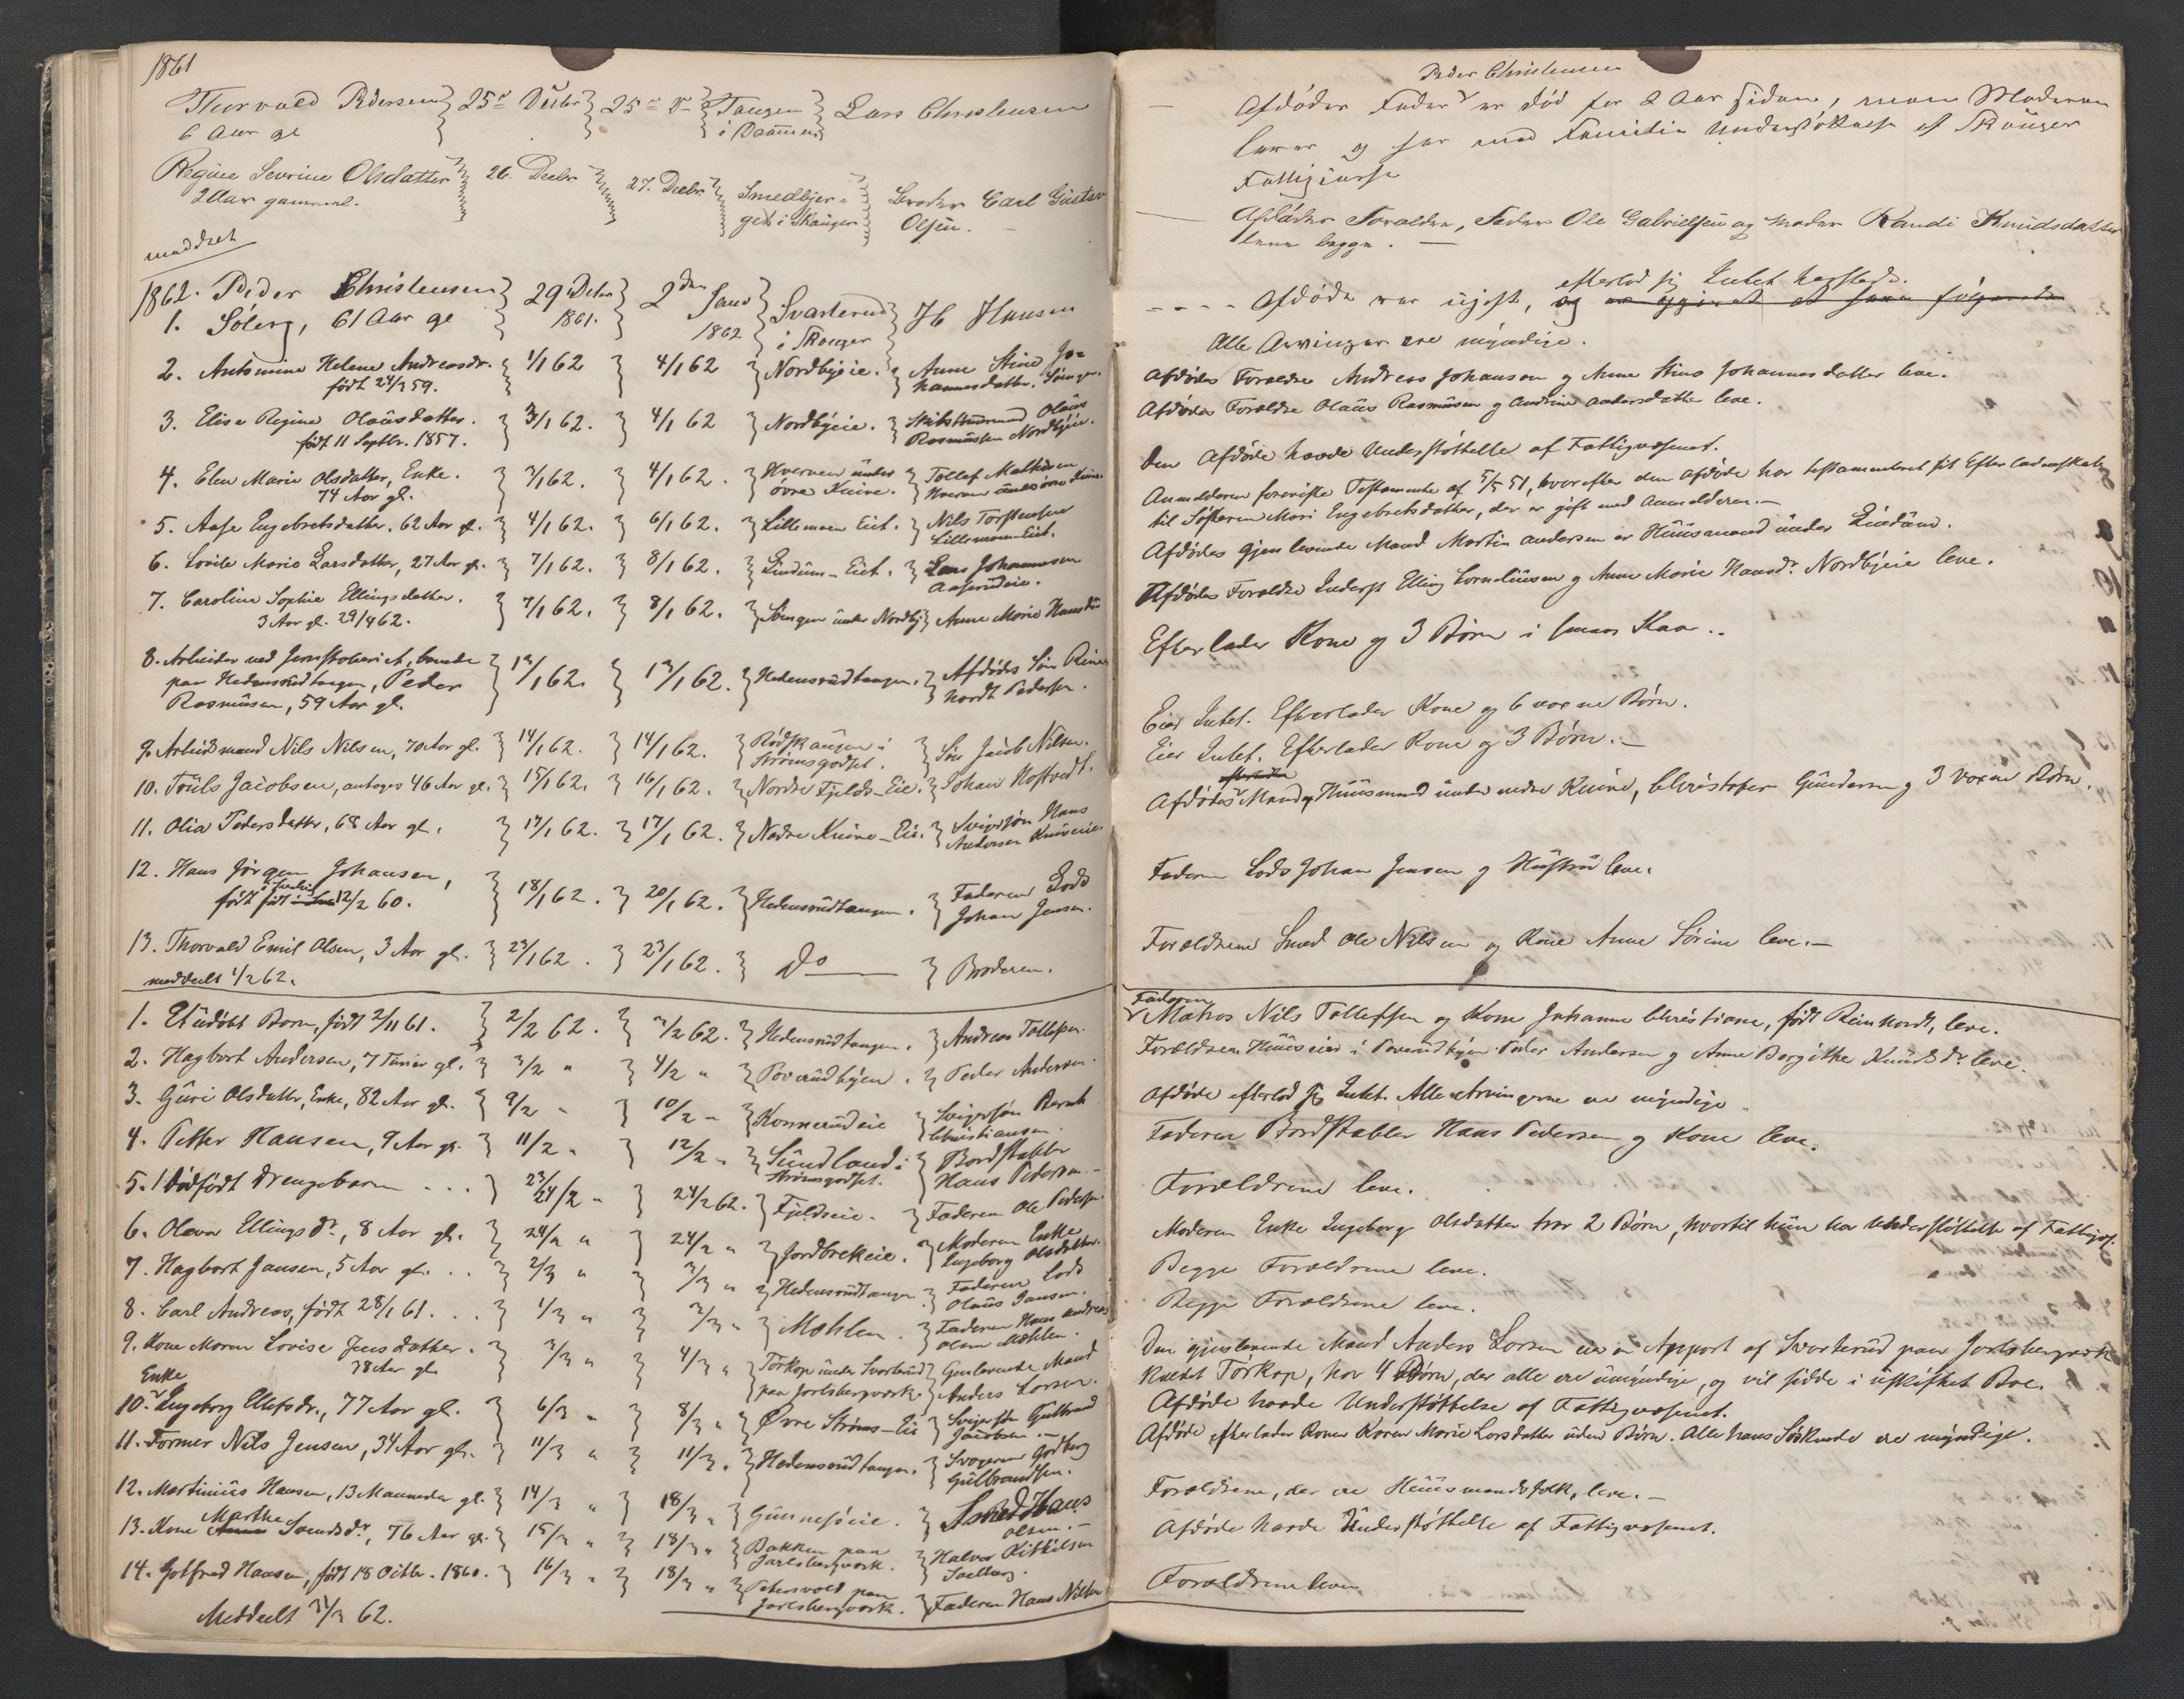 1861
Thorvald Pedersen } 25de Decbr } 25de D } Tangen } Lars Christensen
6 Aar gl i Drammen
Regine Severine Olsdatter } 26. Decbr } 27. Decbr } Smedbjer- } Broder Carl Gustav
2 Aar gammel. get i Skouger Olsen.
meddeelt
1862. Peder Christensen } 29 Decbr } 2den Janr } Svarterud } H Hansen
1. Solerg, 61 Aar gl 1861. 1862 i Skouger
2. Antomine Helene Andreasdr. } 1/1 62 } 4/1 62 } Nordbyeie. } Anne Stine Jo-
født 24/3 59. hannesdatter.
3. Elise Regine Olausdatter. } 3/1 62. } 4/1 62 } Nordbyeie. } Olaus
født 11 Septbr. 1857. Rasmussen Nordbyeie.
4. Elen Marie Olsdatter, Enke. } 3/1 62. } 4/1 62. } Hverven under } Tollef Mathisen
74 Aar gl. øvre Knive.
5. Aase Engebretsdatter, 62 Aar gl. } 4/1 62. } 6/1 62. } Lillemoen Eiet. } Nils Torstensen
Lillemoen Eiet.
6. Lovise Marie Larsdatter, 27 Aar gl. } 7/1 62. } 8/1 62. } Lindum-Eiet. } Lars Johannesen
Aaserudeie.
7. Caroline Sophie Ellingsdatter. } 7/1 62. } 8/1 62. } under Nordby } Anne Marie Hansdr
3 Aar gl. 29/4 62.
8. Arbeider ved Jernstøberiet, boende } 12/1 62. } 13/1 62. } Hedensrudtangen. } Afdødes Søn Rein-
paa Hedensrudtangen, Peder hardt Pedersen.
Rasmussen, 59 Aar gl.
9. Arbeidsmand Nils Nilsen, 70 Aar gl. } 14/1 62. } 14/1 62. } Rødskaugen i } Søn Jacob Nilsen.
Strømsgodset.
10. Truls Jacobsen, antages 46 Aar gl. } 15/1 62. } 16/1 62. } Nordre Fjelds-Eie. } Johan Hoftvedt.
11. Olia Pedersdatter, 68 Aar gl. } 17/1 62. } 17/1 62. } Nedre Knive-Eie. } Svigersøn Hans
Andersen Kniveeie.
12. Hans Jørgen Johansen, } 18/1 62. } 20/1 62. } Hedensrudtangen. } Faderen Lods
født 12/2 60. Johan Jensen.
13. Thorvald Emil Olsen, 3 Aar gl. } 23/1 62. } 23/1 62. } Do } Broderen.
meddeelt 1/2 62.
1. Et udøbt Barn, født 2/11 61. } 2/2 62. } 3/2 62. } Hedensrudtangen. } Andreas Tollefsen.
2. Hagbart Andersen, 7 Timer gl. } 3/2 " } 4/2 " } Poverudbyen. } Peder Andersen.
3. Guri Olsdatter, Enke, 82 Aar gl. } 9/2 " } 10/2 " } Konnerudeie } Svigersøn Bernt
Christiansen.
4. Petter Hansen, 9 Aar gl. } 11/2 " } 12/2 " } Sundland i } Bordstabler
Strømsgodset. Hans Pedersen.
5. 1 Dødfødt Drengebarn ... } 23/24/2 " } 24/2 62. } Fjeldseie. } Faderen Ole Pedersen.
6. Olava Ellingsdr., 8 Aar gl. } 24/2 " } 24/2 " } Jordbrekeie. } Moderen Enke
Ingeborg Olsdatter.
7. Hagbart Jansen, 5 Aar gl. .. } 2/3 " } 3/3 " } Hedensrudtangen } Faderen Lods
Olaus Jansen.
8. Carl Andreas, født 28/1 61. .. } 1/3 " } 3/3 " } Mæhlen. } Faderen Hans Andreas
Olsen Mæhlen.
9. Kone Maren Lovise Jensdatter. } 3/3 " } 4/3 " } Torkop under Svarterud } Genlevende Mand
38 Aar gl paa Jarlsbergværk. Anders Larsen.
Enke
10. Ingeborg Ellefsdr., 77 Aar gl. } 6/3 " } 8/3 " } Øvre Strøms-Eie } Svigersøn Gulbrand
Jacobsen.
11. Former Nils Jensen, 34 Aar gl. } 11/3 " } 11/3 " } Hedensrudtangen. } Svogeren Gotborg
Gulbrandsen.
12. Martinius Hansen, 13 Maaneder gl. } 14/3 " } 18/3 " } Gunnesøeie. } Smed Hans
Olsen.
Marthe
13. Kone Anne Svendsdr., 76 Aar gl. } 15/3 " } 18/3 " } Bakken paa } Halvor Kittilsen
Jarlsbergværk.
14. Gotfred Hansen, født 18 Octbr. 1860. } 16/3 " } 18/3 " } Petersvold paa } Faderen Hans Nilsen
Jarlsbergværk.
Meddeelt 31/3 62.
Peder Christensen
Afdødes Fader er død for 2 Aar siden, men Moderen
lever og har med Familie Understøttelse af Skouger
Fattigkasse
Afdødes Forældre, Fader Ole Gabrielsen og Moder Randi Knudsdatter
leve begge.
efterlod sig Intet
Afdøde var ugift, og
Alle Arvinger ere myndige.
Afdødes Forældre Andreas Johansen og Anne Stine Johannesdatter leve.
Afdødes Forældre Olaus Rasmusen og Andrine Andersdatter leve.
Den Afdøde havde Understøttelse af Fattigvæsenet.
Anmelderen foreviste Testamente af 5/5 51, hvorefter den Afdøde har testamenteret sit Efterladenskab
til Søsteren Mari Engebretsdatter, der er gift med Anmelderen.
Afdødes gjenlevende Mand Martin Andersen er Huusmand under Lindum.
Afdødes Forældre Inderst Elling Corneliusen og Anne Marie Hansdr. Nordbyeie leve.
Efterlader Kone og 3 Børn i smaa Kaar..
Eier Intet. Efterlader Kone og 6 voxne Børn.
Eier Intet. Efterlader Kone og 3 Børn.
Afdødes Mand Huusmand under nedre Knive, Christofer Gundersen og 3 voxne Børn.
Faderen Lods Johan Jensen og Hustru leve.
Forældrene Smed Ole Nilsen og Kone Anne Sørine leve.
Faderen
Matros Nils Tollefsen og Kone Johanne Christiane, født Reinhardt, leve.
Forældrene Huuseier i Poverudbyen Peder Andersen og Anne Birgithe Knudsdr. leve.
Afdøde efterlod sig Intet. Alle Arvingerne ere myndige.
Faderen Bordstabler Hans Pedersen og Kone leve.
Forældrene leve.
Moderen Enke Ingeborg Olsdatter har 2 Børn, hvortil hun har Understøttelse af Fattigvæs.
Begge Forældrene leve.
Begge Forældrene leve.
Den gjenlevende Mand Anders Larsen eier en Appert af Svarterud paa Jarlsbergværk
kaldet Torkop, har 4 Børn, der alle ere umyndige, og vil sidde i uskiftet Boe.
Afdøde havde Understøttelse af Fattigvæsenet.
Afdøde efterlader Konen Karen Marie Larsdatter uden Børn. Alle hans Søskende ere myndige.
Forældrene, der ere Huusmandsfolk, leve.
Afdøde havde Understøttelse af Fattigvæsenet.
Forældrene leve.